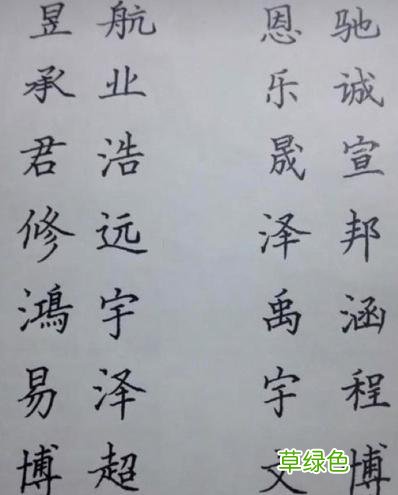 昱航 恩驰
承业 乐诚
君浩 晟宣
修远 泽邦
鴻宇 禹涵
易泽 宇程
博超 文博
草绿色